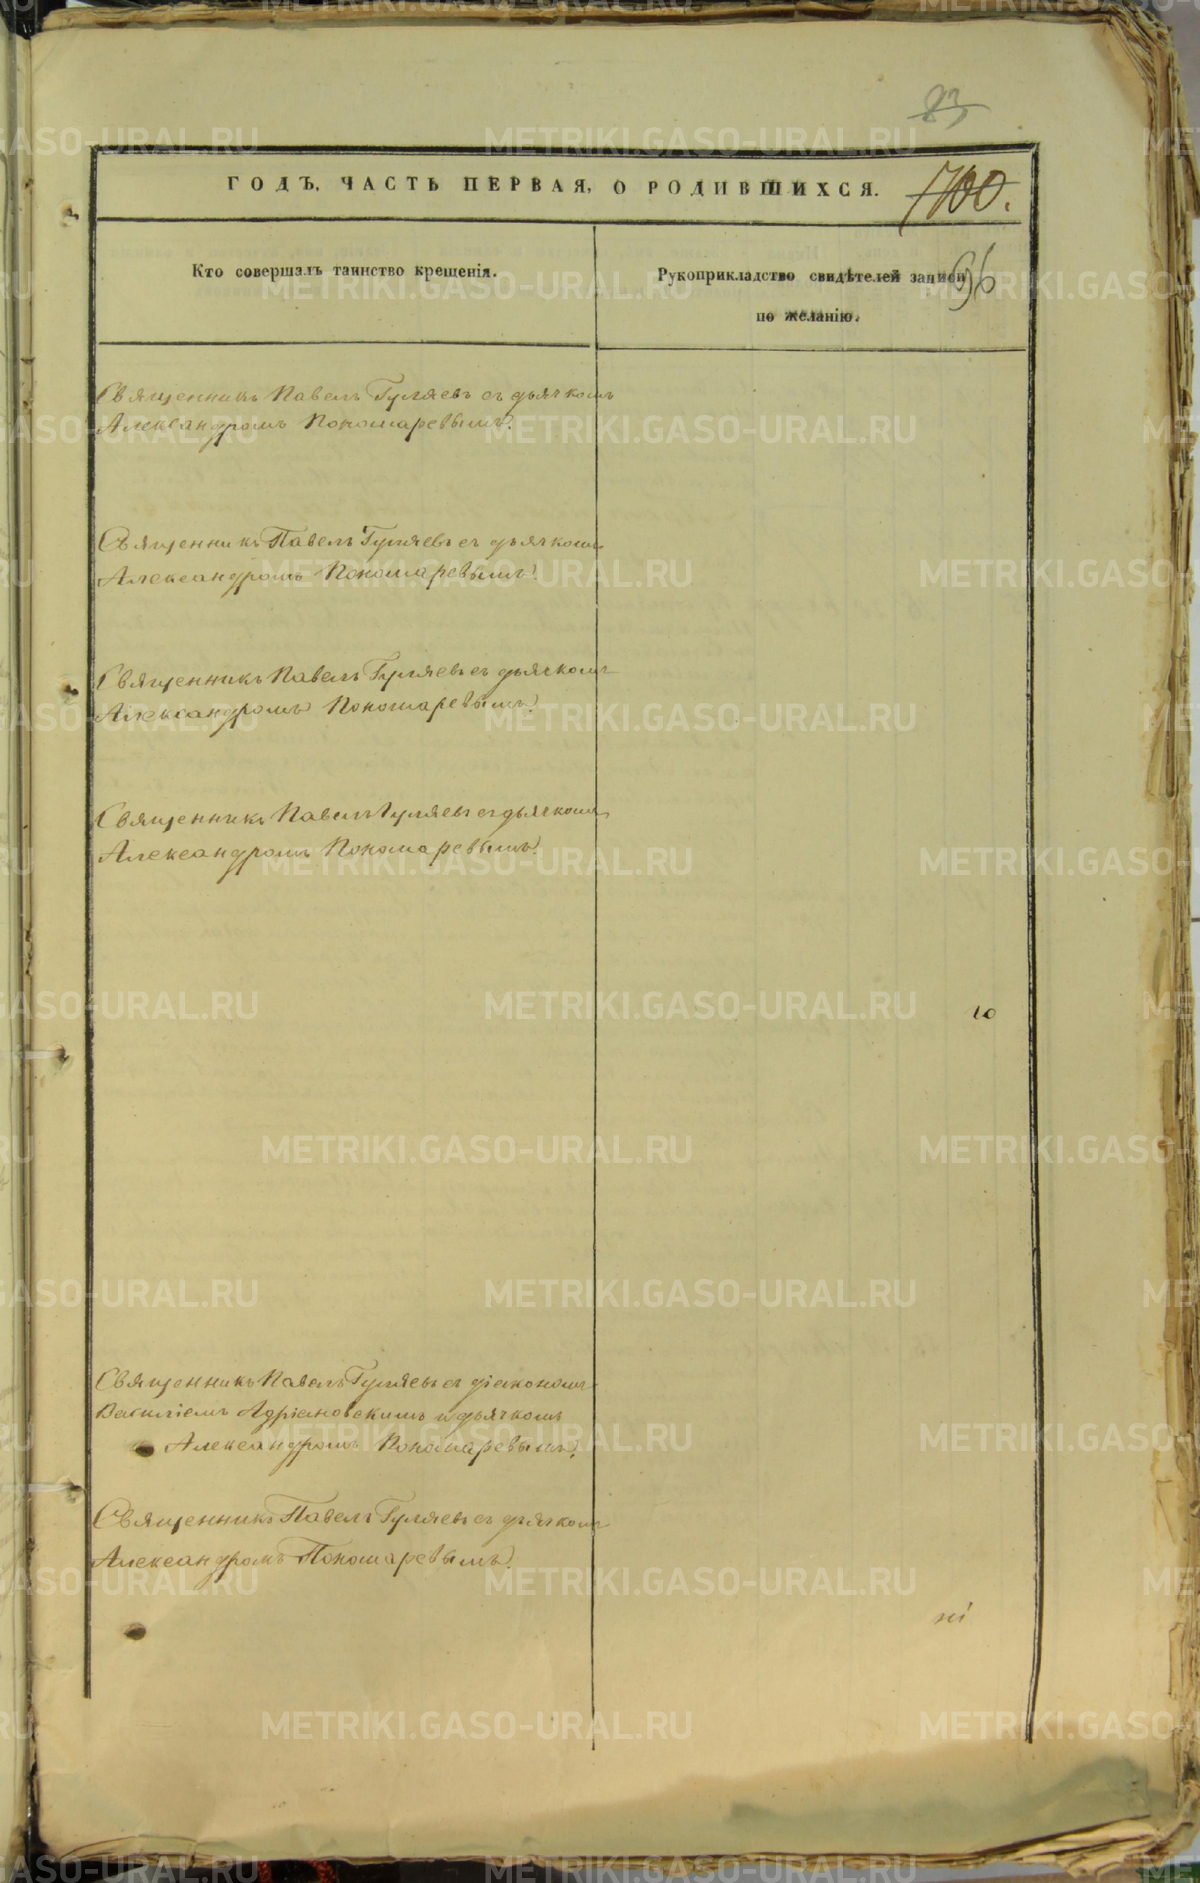 83
ГОДЪ, ЧАСТЬ ПЕРВАЯ, О РОДИВШИХСЯ.
700.
Кто совершалъ таинство крещенія.
Рукоприкладство свидѣтелей записи
по желанію.
96
Священникъ Павелъ Гуляевъ съ дьячкомъ
Александромъ Пономаревымъ.
Священникъ Павелъ Гуляевъ съ дьячкомъ
Александромъ Пономаревымъ.
Священникъ Павелъ Гуляевъ съ дьячкомъ
Александромъ Пономаревымъ.
Священникъ Павелъ Гуляевъ съ дьячкомъ
Александромъ Пономаревымъ.
ю
Священникъ Павелъ Гуляевъ съ діакономъ
Василіемъ Адріановскимъ и дьячкомъ
Александромъ Пономаревымъ.
Священникъ Павелъ Гуляевъ съ дьячкомъ
Александромъ Пономаревымъ.
METRIKI.GASO-URAL.RU